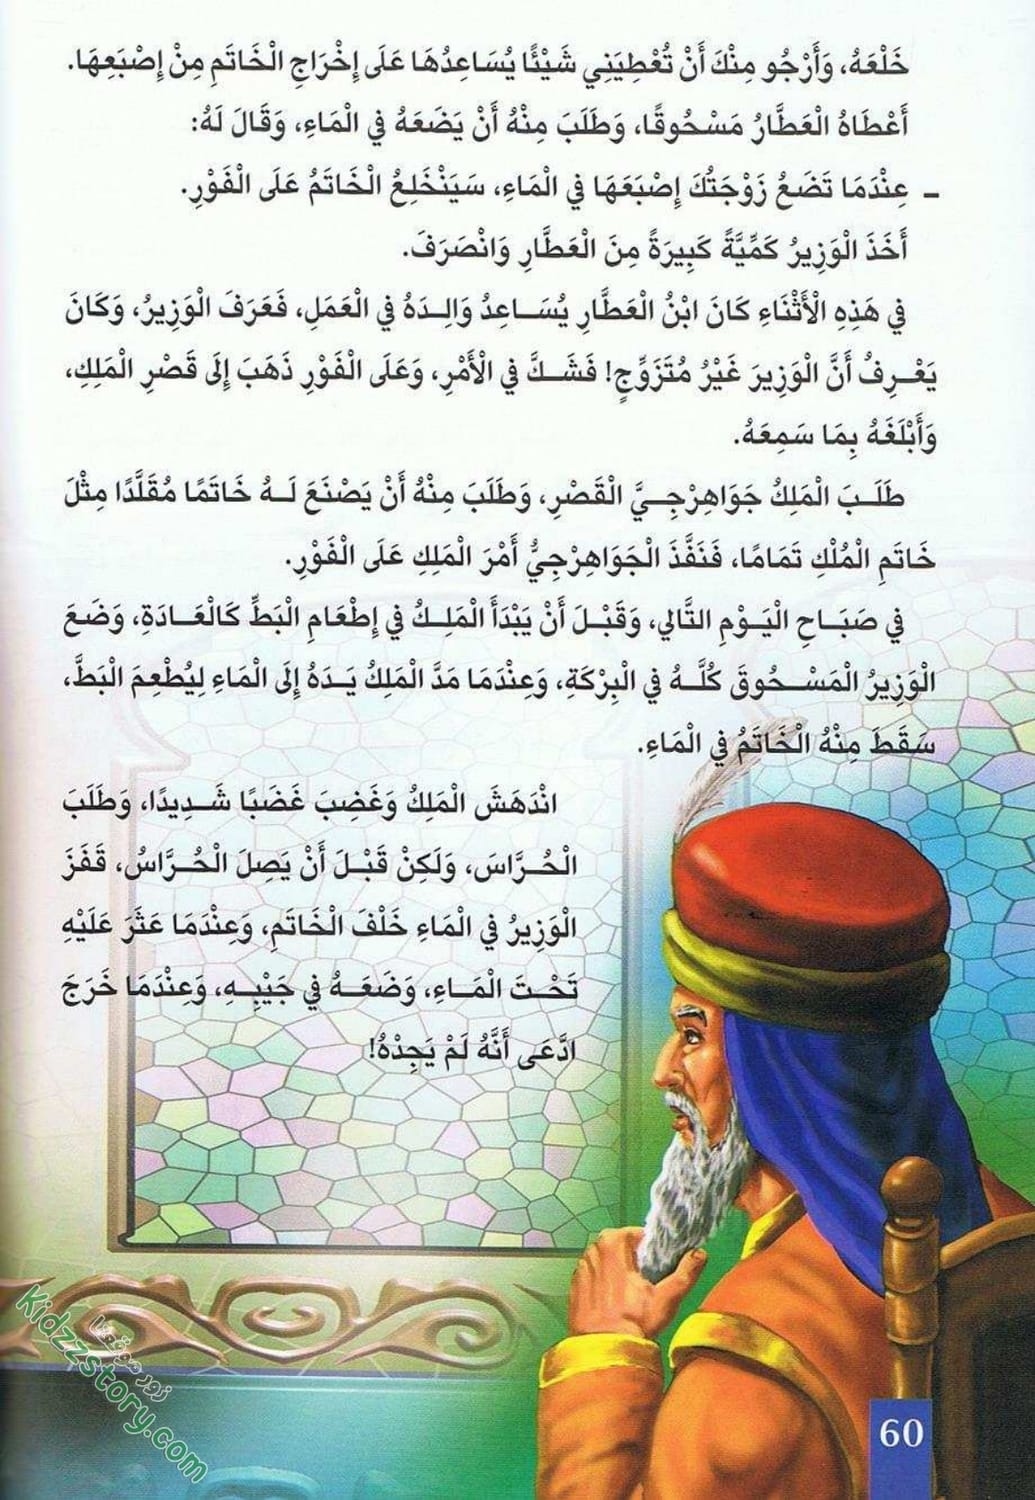 خَلْعَهُ، وَأَرْجُو مِنْكَ أَنْ تُعْطِيَنِي شَيْئًا يُسَاعِدُهَا عَلَى إِخْرَاجِ الْخَاتَمِ مِنْ إِصْبَعِهَا.
أَعْطَاهُ الْعَطَّارُ مَسْحُوقًا، وَطَلَبَ مِنْهُ أَنْ يَضَعَهُ فِي الْمَاءِ، وَقَالَ لَهُ:
- عِنْدَمَا تَضَعُ زَوْجَتُكَ إِصْبَعَهَا فِي الْمَاءِ، سَيَنْخَلِعُ الْخَاتَمُ عَلَى الْفَوْرِ.
أَخَذَ الْوَزِيرُ كَمِّيَّةً كَبِيرَةً مِنَ الْعَطَّارِ وَانْصَرَفَ.
فِي هَذِهِ الْأَثْنَاءِ كَانَ ابْنُ الْعَطَّارِ يُسَاعِدُ وَالِدَهُ فِي الْعَمَلِ، فَعَرَفَ الْوَزِيرُ، وَكَانَ
يَعْرِفُ أَنَّ الْوَزِيرَ غَيْرُ مُتَزَوِّجٍ! فَشَكَّ فِي الْأَمْرِ، وَعَلَى الْفَوْرِ ذَهَبَ إِلَى قَصْرِ الْمَلِكِ،
وَأَبْلَغَهُ بِمَا سَمِعَهُ.
طَلَبَ الْمَلِكُ جَوَاهِرْجِيَّ الْقَصْرِ، وَطَلَبَ مِنْهُ أَنْ يَصْنَعَ لَهُ خَاتَمًا مُقَلَّدًا مِثْلَ
خَاتَمِ الْمُلْكِ تَمَامًا، فَنَفَّذَ الْجَوَاهِرْجِيُّ أَمْرَ الْمَلِكِ عَلَى الْفَوْرِ.
فِي صَبَاحِ الْيَوْمِ التَّالِي، وَقَبْلَ أَنْ يَبْدَأَ الْمَلِكُ فِي إِطْعَامِ الْبَطِّ كَالْعَادَةِ، وَضَعَ
الْوَزِيرُ الْمَسْحُوقَ كُلَّهُ فِي الْبِرْكَةِ، وَعِنْدَمَا مَدَّ الْمَلِكُ يَدَهُ إِلَى الْمَاءِ لِيُطْعِمَ الْبَطَّ،
سَقَطَ مِنْهُ الْخَاتَمُ فِي الْمَاءِ.
انْدَهَشَ الْمَلِكُ وَغَضِبَ غَضَبًا شَدِيدًا، وَطَلَبَ
الْحُرَّاسَ، وَلَكِنْ قَبْلَ أَنْ يَصِلَ الْحُرَّاسُ، قَفَزَ
الْوَزِيرُ فِي الْمَاءِ خَلْفَ الْخَاتَمِ، وَعِنْدَمَا عَثَرَ عَلَيْهِ
تَحْتَ الْمَاءِ، وَضَعَهُ فِي جَيْبِهِ، وَعِنْدَمَا خَرَجَ
ادَّعَى أَنَّهُ لَمْ يَجِدْهُ!
زوروا موقعنا
Kidzzstory.com
60